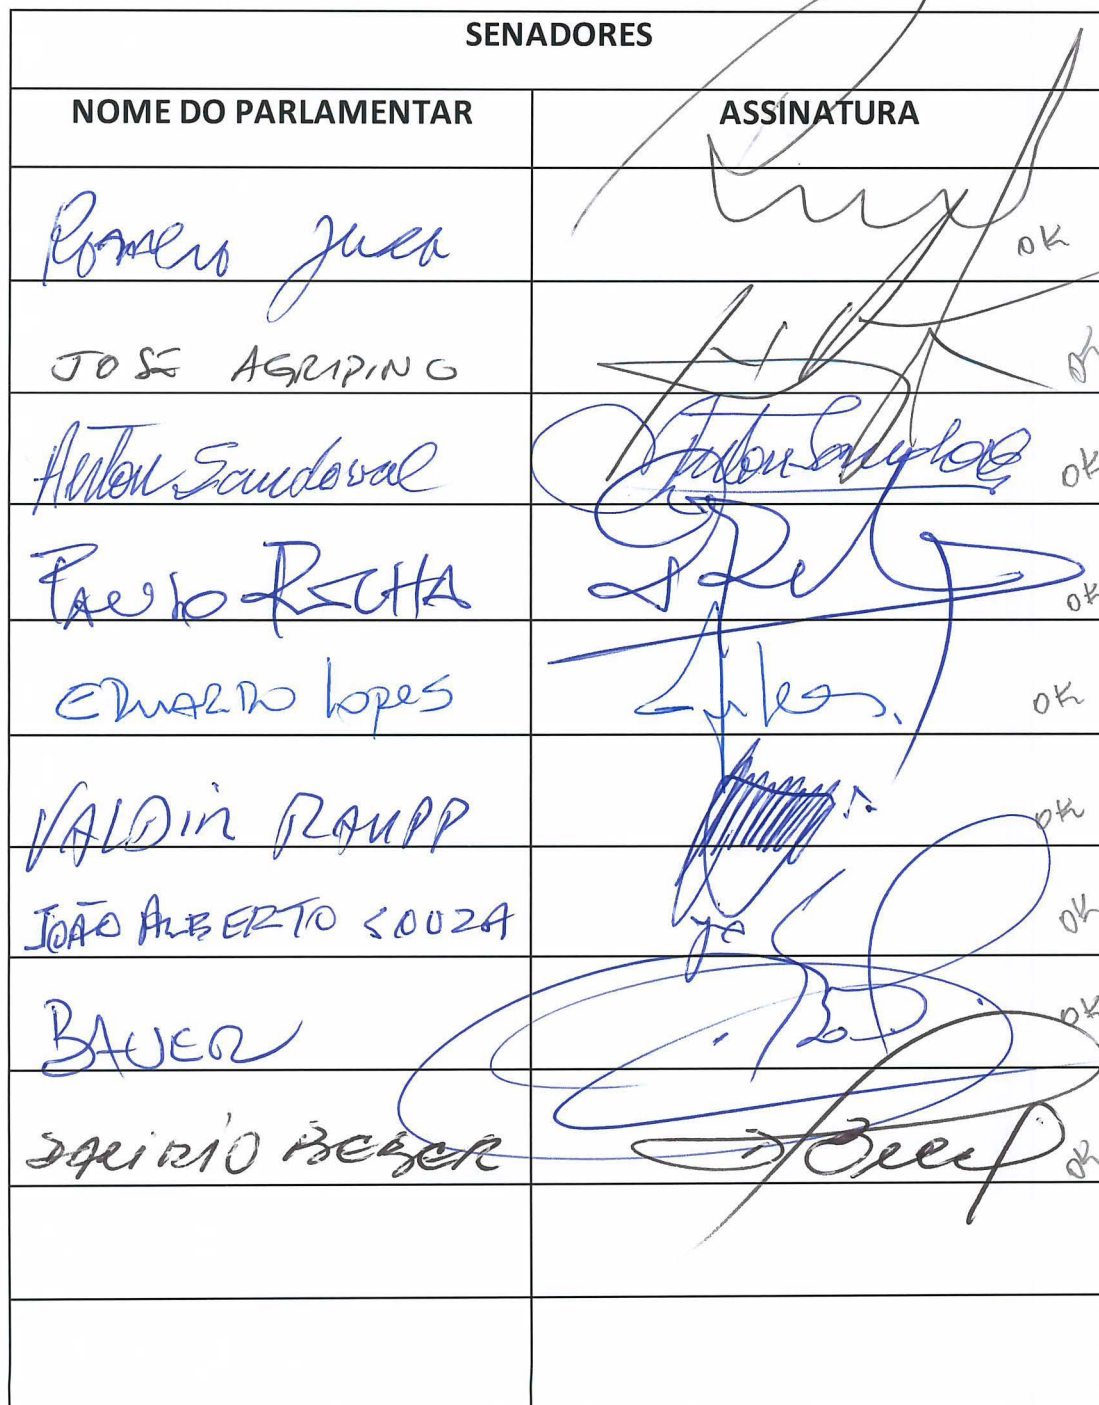 SENADORES
NOME DO PARLAMENTAR ASSINATURA
Romero Jucá OK
JOSÉ AGRIPINO OK
Airton Sandoval Airton Sandoval OK
PAULO ROCHA OK
EDUARDO Lopes OK
VALDIR RAUPP OK
JOÃO ALBERTO SOUZA OK
BAUER OK
DALIRIO BEBER OK